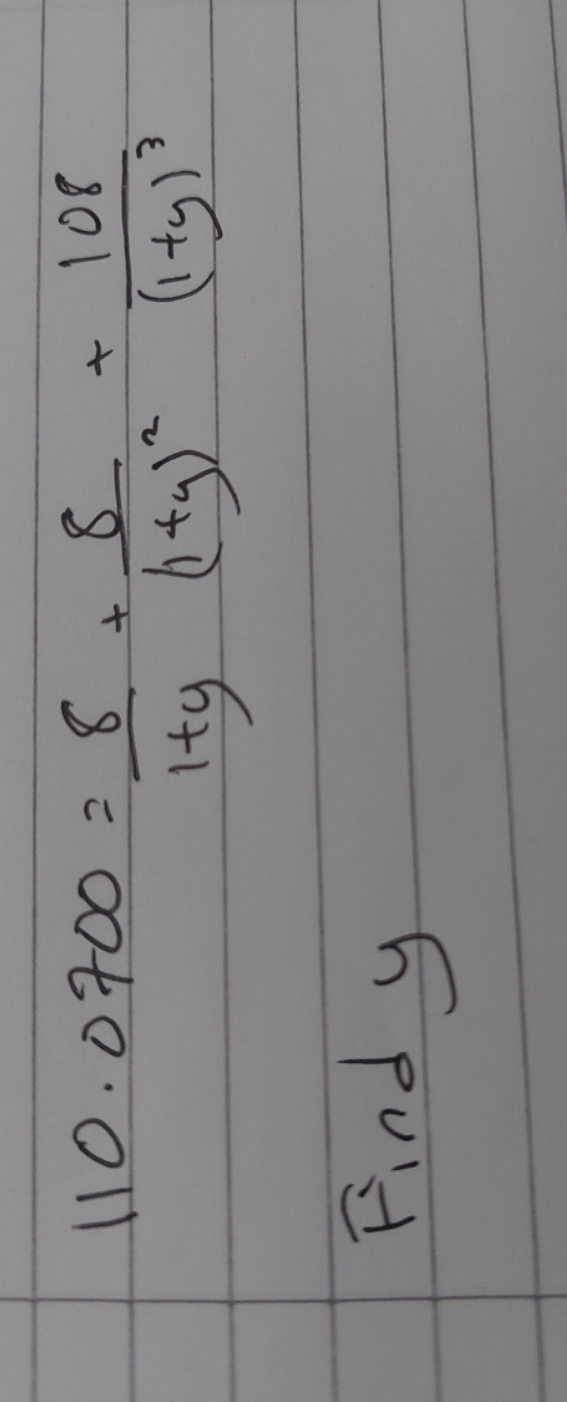 110.0700 = 8/(1+y) + 8/(1+y)² + 108/(1+y)³
Find y